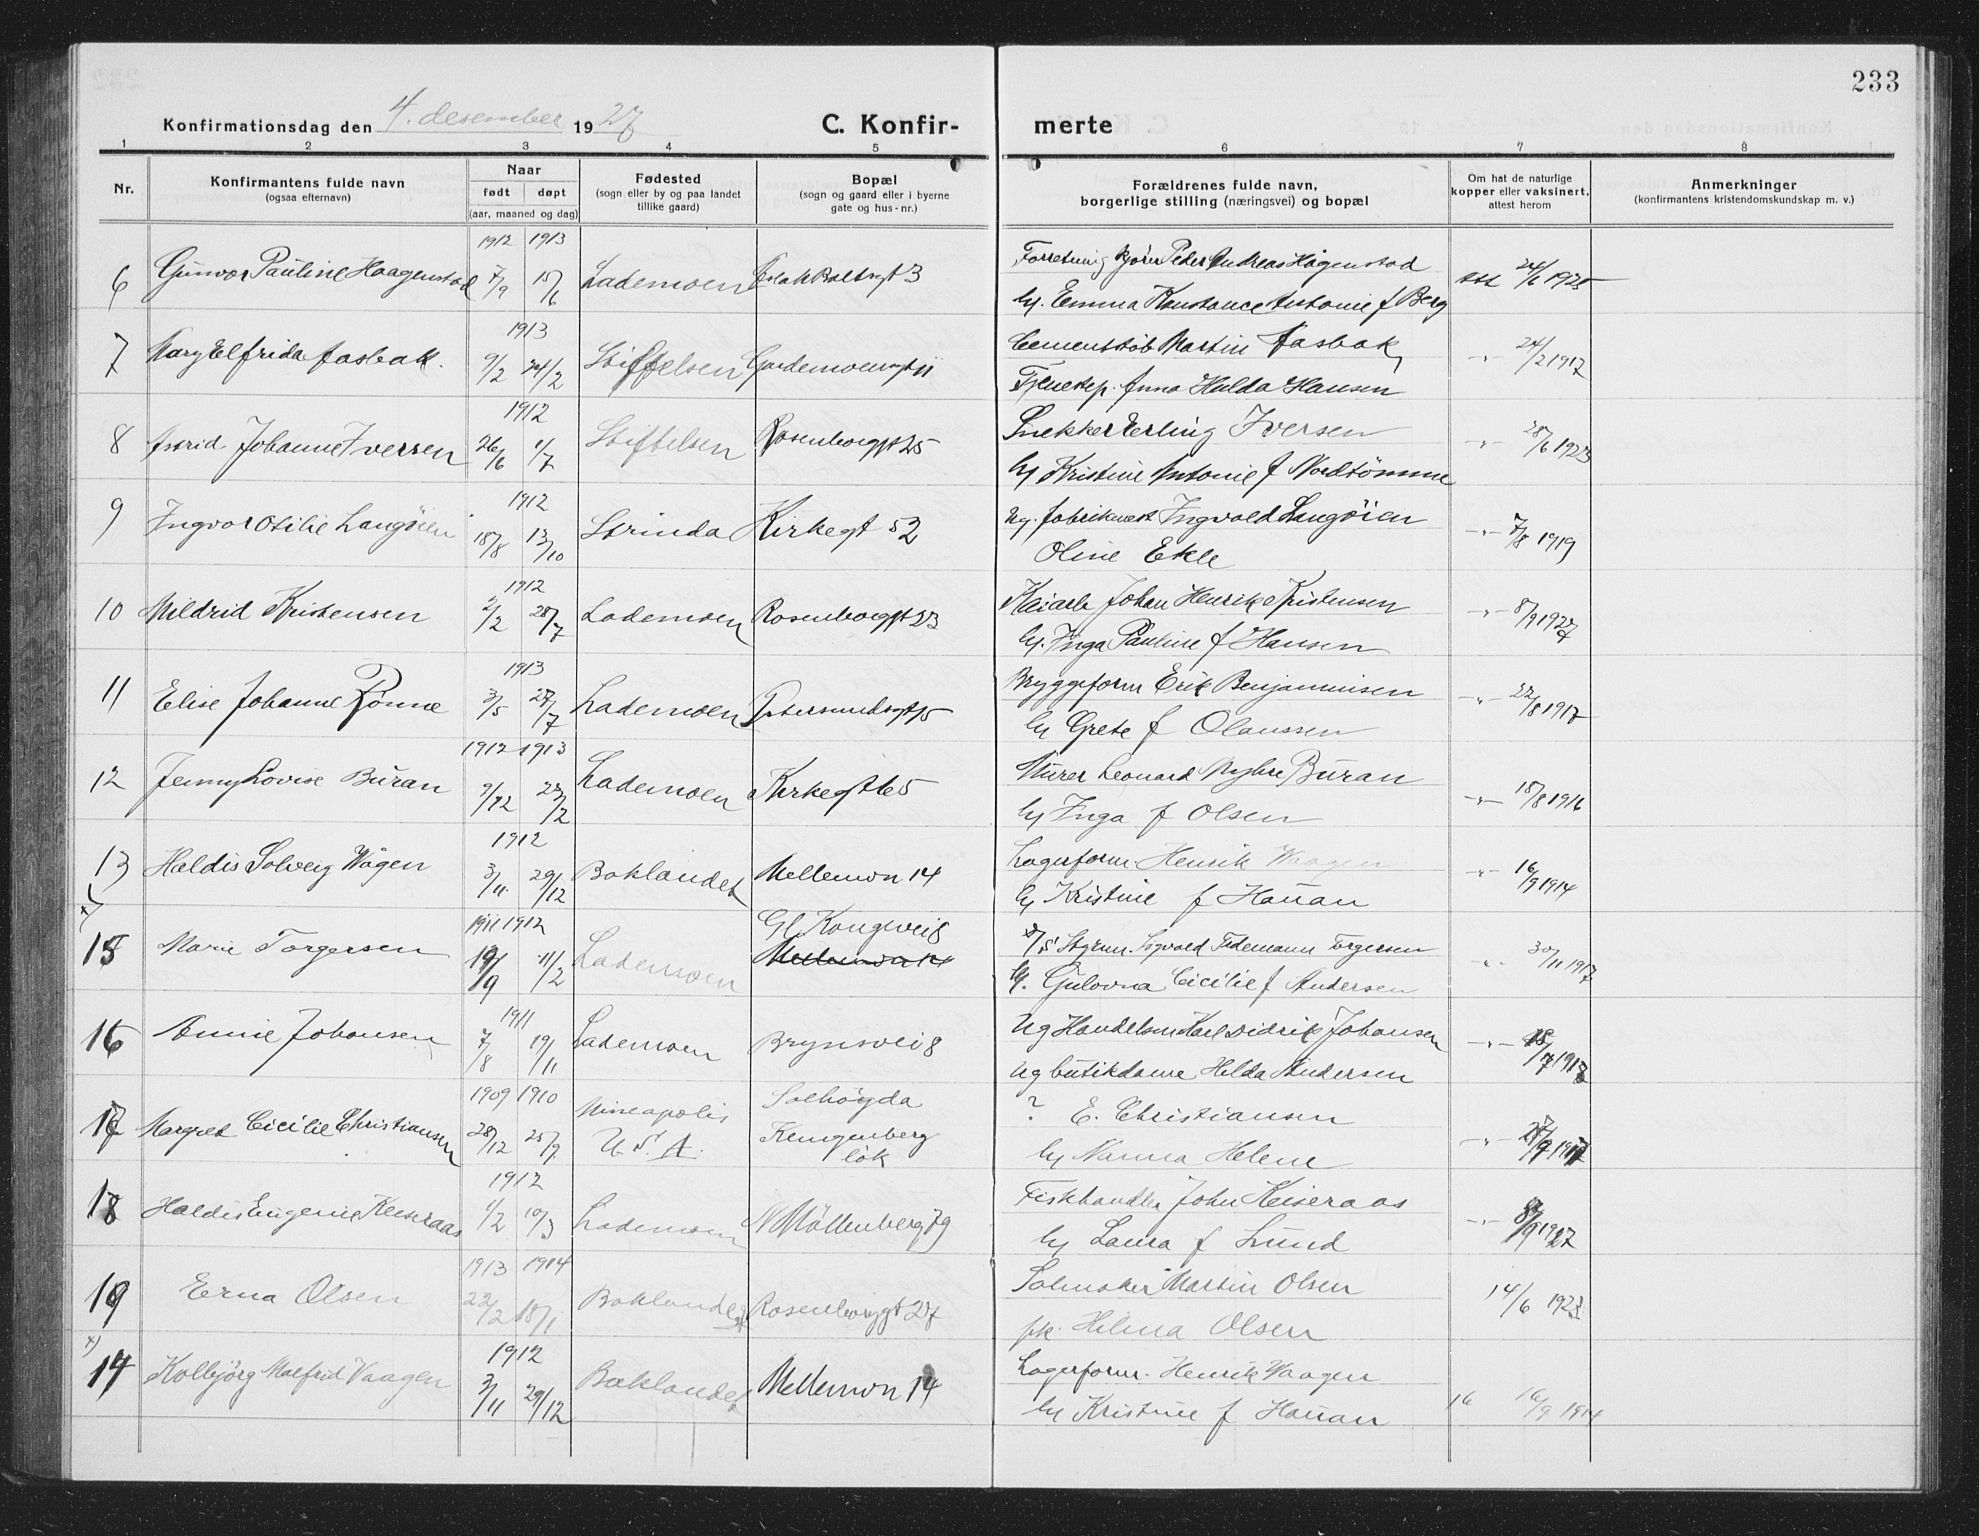 233
Konfirmationsdag den 4. desember 1927 C. Konfirmerte
1 2 3 4 5 6 7 8
Nr.
Konfirmantens fulde navn
(ogsaa efternavn)
Naar
født døpt
(aar, maaned og dag)
Fødested
(sogn eller by og paa landet
tillike gaard)
Bopæl
(sogn og gaard eller i byerne
gate og hus-nr.)
Forældrenes fulde navn,
borgerlige stilling (næringsvei) og bopæl
Om hat de naturlige
kopper eller vaksinert,
attest herom
Anmerkninger
(konfirmantens kristendomskundskap m. v.)
1912 1913
6 Gunvor Pauline Haagenstad 7/9 15/6 Lademoen 3
Peder Andreas Hagenstad
att 24/6 1925
hj. Emma Konstance Antonie f Berg
1913
7 Mary Elfrida Aasbak. 9/2 24/2 Stiftelsen Gardemoensgt 11
Cementstøb Martin Aasbak,
-"- 24/2 1917
Tjenestep. Anna Hulda Hansen
1912
8 Astrid Johanne Iversen 26/6 1/7 Stiftelsen Rosenborggt 25
Snekker Erling Iversen
-"- 28/6 1923
hj Kristine Antonie f Nordtömme
1912
9 Ingvor Otilie Langöien 18/8 13/10 Strinda Kirkegt 52
Ug. fabrikmest Ingvald Langöien
-"- 7/8 1919
Oline Ekle
1912
10 Mildrid Kristensen 2/2 28/7 Lademoen Rosenborggt 23
Kaiarb Johan Henrik Kristensen
-"- 8/9 1927
hj. Inga Pauline f Hansen
1913
11 Elise Johanne Rönne 3/5 27/7 Lademoen
Bryggeform Erik Benjaminsen
-"- 22/8 1917
hj Grete f Olaussen
1912 1913
12 Jenny Lovise Buran 9/12 23/2 Lademoen Kirkegt 65
Murer Leonard Buran
-"- 18/8 1916
hj Inga f Olsen
1912
13 Haldis Solveig Wågen 3/11. 29/12 Baklandet Mellemvn 14
Lagerform. Henrik Waagen
-"- 16/9 1914
hj Kristine f Hauan
x)
1911 1912
Gl. Kongevei 8
15 Marie Torgersen 19/9 11/2 Lademoen Mellemvn 14
d/s Styrm. Sigvald Tidemann Torgersen
-"- 30/11 1917
hj. Gulovna Cicilie f Andersen
1911
16 Annie Johansen 7/8 19/11 Lademoen Brynsvei 8
Ug Handelsm Karl Didrik Johansen
-"- 18/7 1918
Ug butikdame Hilda Andersen
1909 1910
17 Margret Cicilie Christiansen 28/12 25/9 Mineapolis
U. S. A.
Solhögda
lök
? E. Christiansen
-"-
hj Nanna Helene
1912
18 Haldis Eugenie Keiseraas 1/2 10/3 Lademoen N Möllenberg 79
Fiskhandler John Keiseraas
-"- 8/9 1927
hj Laura f Lund
1913 1914
19 Erna Olsen 22/2 18/1 Baklandet Rosenborggt 27
Salmaker Martin Olsen
14/6 1923
pk. Hilma Olsen
x)
1912
14 Kolbjörg Malfrid Vaagen 3/11 29/12 Baklandet Mellemvn 14
Lagerform. Henrik Vaagen
16 16/9 1914
hj Kristine f Hauan